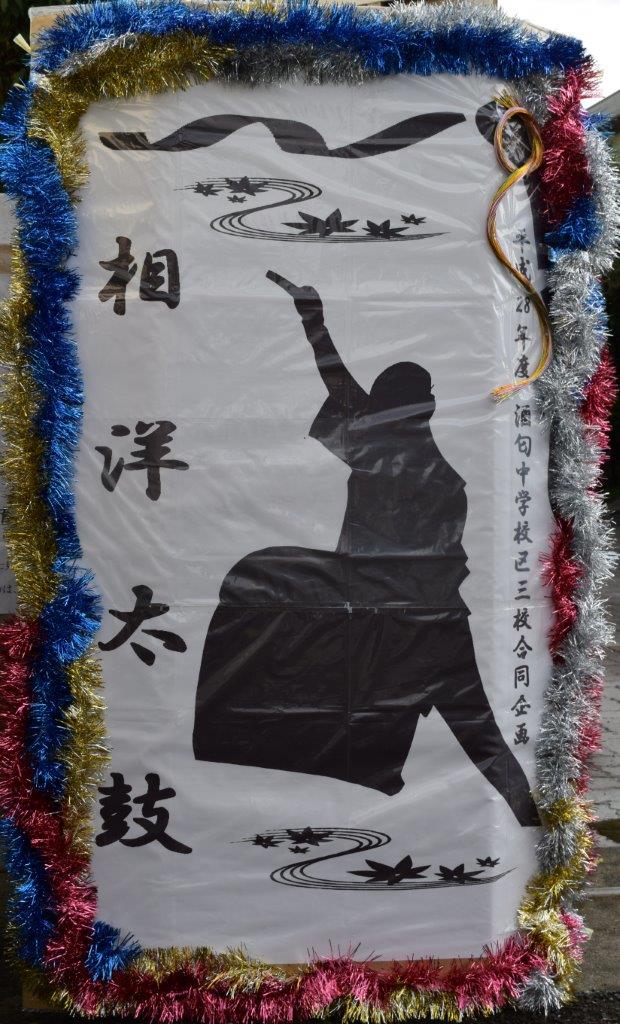 平成28年度 酒匂中学校区三校合同企画
相洋太鼓